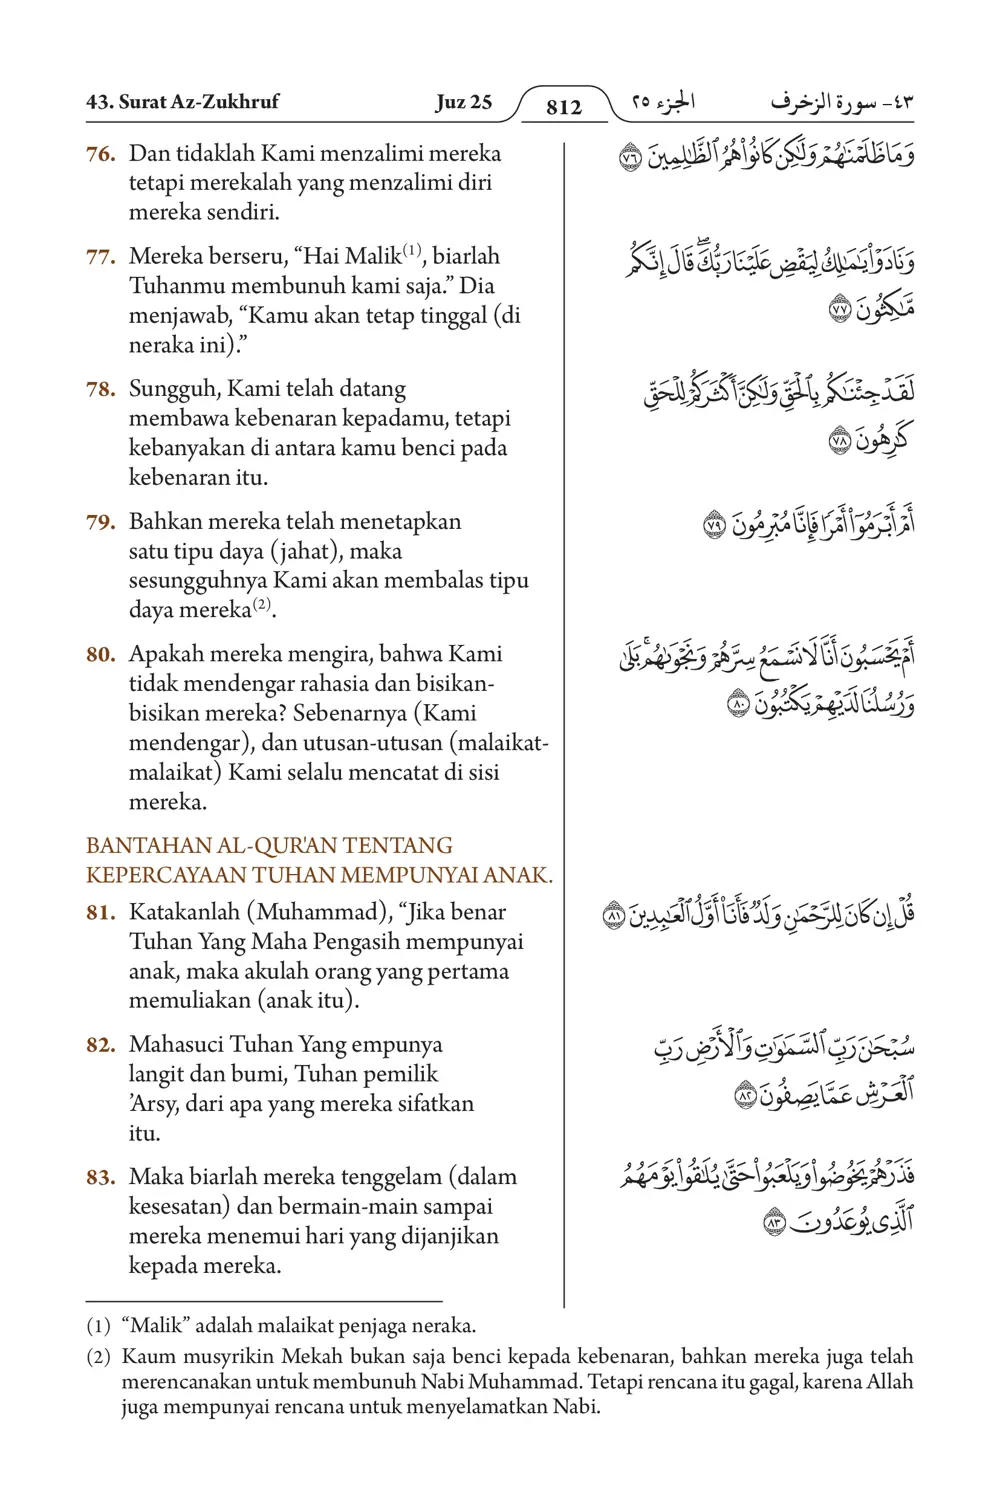 43. Surat Az-Zukhruf Juz 25 812 الجزء ٢٥ ٤٣- سورة الزخرف
76. Dan tidaklah Kami menzalimi mereka
tetapi merekalah yang menzalimi diri
mereka sendiri.
وَمَا ظَلَمْنَٰهُمْ وَلَٰكِن كَانُوا۟ هُمُ ٱلظَّٰلِمِينَ ٧٦
77. Mereka berseru, “Hai Malik(1), biarlah
Tuhanmu membunuh kami saja.” Dia
menjawab, “Kamu akan tetap tinggal (di
neraka ini).”
وَنَادَوْا۟ يَٰمَٰلِكُ لِيَقْضِ عَلَيْنَا رَبُّكَ ۖ قَالَ إِنَّكُم
مَّٰكِثُونَ ٧٧
78. Sungguh, Kami telah datang
membawa kebenaran kepadamu, tetapi
kebanyakan di antara kamu benci pada
kebenaran itu.
لَقَدْ جِئْنَٰكُم بِٱلْحَقِّ وَلَٰكِنَّ أَكْثَرَكُمْ لِلْحَقِّ
كَٰرِهُونَ ٧٨
79. Bahkan mereka telah menetapkan
satu tipu daya (jahat), maka
sesungguhnya Kami akan membalas tipu
daya mereka(2).
أَمْ أَبْرَمُوٓا۟ أَمْرًا فَإِنَّا مُبْرِمُونَ ٧٩
80. Apakah mereka mengira, bahwa Kami
tidak mendengar rahasia dan bisikan-
bisikan mereka? Sebenarnya (Kami
mendengar), dan utusan-utusan (malaikat-
malaikat) Kami selalu mencatat di sisi
mereka.
أَمْ يَحْسَبُونَ أَنَّا لَا نَسْمَعُ سِرَّهُمْ وَنَجْوَىٰهُم ۚ بَلَىٰ
وَرُسُلُنَا لَدَيْهِمْ يَكْتُبُونَ ٨٠
BANTAHAN AL-QUR'AN TENTANG
KEPERCAYAAN TUHAN MEMPUNYAI ANAK.
81. Katakanlah (Muhammad), “Jika benar
Tuhan Yang Maha Pengasih mempunyai
anak, maka akulah orang yang pertama
memuliakan (anak itu).
قُلْ إِن كَانَ لِلرَّحْمَٰنِ وَلَدٌ فَأَنَا۠ أَوَّلُ ٱلْعَٰبِدِينَ ٨١
82. Mahasuci Tuhan Yang empunya
langit dan bumi, Tuhan pemilik
’Arsy, dari apa yang mereka sifatkan
itu.
سُبْحَٰنَ رَبِّ ٱلسَّمَٰوَٰتِ وَٱلْأَرْضِ رَبِّ
ٱلْعَرْشِ عَمَّا يَصِفُونَ ٨٢
83. Maka biarlah mereka tenggelam (dalam
kesesatan) dan bermain-main sampai
mereka menemui hari yang dijanjikan
kepada mereka.
فَذَرْهُمْ يَخُوضُوا۟ وَيَلْعَبُوا۟ حَتَّىٰ يُلَٰقُوا۟ يَوْمَهُمُ
ٱلَّذِى يُوعَدُونَ ٨٣
(1) “Malik” adalah malaikat penjaga neraka.
(2) Kaum musyrikin Mekah bukan saja benci kepada kebenaran, bahkan mereka juga telah
merencanakan untuk membunuh Nabi Muhammad. Tetapi rencana itu gagal, karena Allah
juga mempunyai rencana untuk menyelamatkan Nabi.